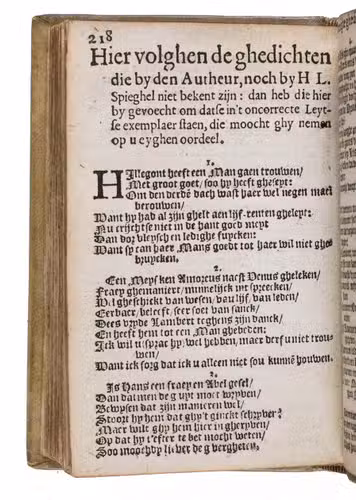 218
Hier volghen de ghedichten
die by den Autheur, noch by H L.
Spieghel niet bekent zijn: dan heb die hier
by gevoecht om datse in't oncorrecte Leyt-
se exemplaer staen, die moocht ghy nemen
op u eyghen oordeel.
1.
HIllegont heeft een Man gaen trouwen/
Met groot goet/ soo hy heeft gheseyt:
Om den derdē dach wast haer wel negen mael
berouwen/
Want hy had al zijn ghelt aen lijf-renten gheleyt:
Nu crijcht se niet in de hant goed
Van dor vleysch en ledighe
Want sy can haer Mans goedt tot haer wil niet ghe
bruycken.
2.
Een Meysken Amoreus nae st Venus gheleken/
Fraey ghemaniert/ minnelijck int spreecken/
Wel gheschickt van wesen/ van lijf/ van leden/
Eerbaer/ beleeft/ seer soet van sanck/
Dees vryde Lambert teghens zijn danck/
En heeft hem tot een Man ghebeden:
Ick wil u/ sprac hy/ wel hebben/ maer derf u niet trou-
wen/
Want ick sorg dat ick u alleen niet sou kunnē houwen.
3.
Is Hans een fraey en Abel gesel/
Van dat men de
Bewysen dat zijn manieren wel/
Stoort hy hem dat ghy't
Maer wilt ghy hem hier in gheryven/
Op dat hy t'effer te bet mocht weten/
Soo moochdy liever de g vergheten.